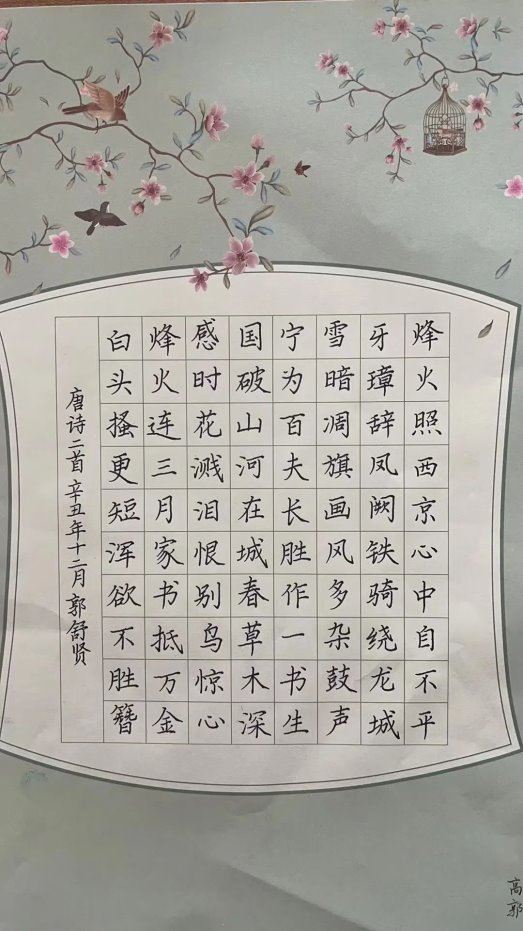 烽火照西京心中自不平
牙璋辞凤阙铁骑绕龙城
雪暗凋旗画风多杂鼓声
宁为百夫长胜作一书生
国破山河在城春草木深
感时花溅泪恨别鸟惊心
烽火连三月家书抵万金
白头搔更短浑欲不胜簪
唐诗二首辛丑年十二月郭舒贤
高郭